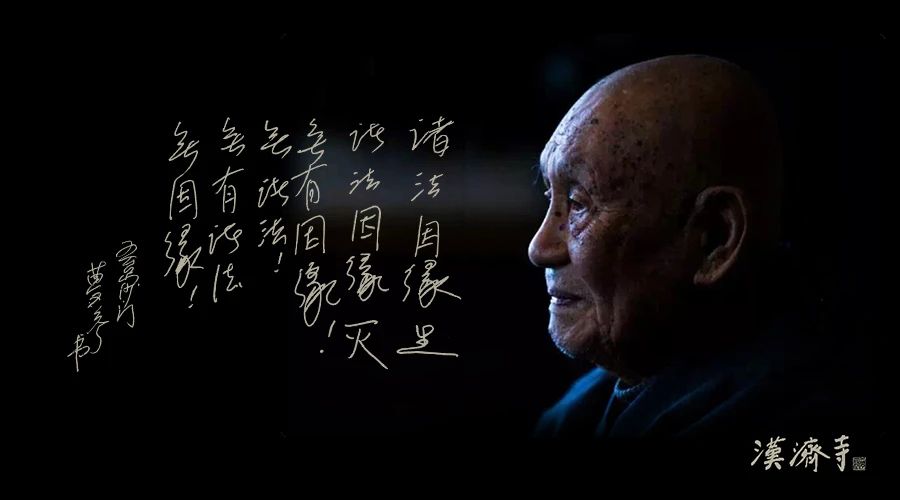 诸法因缘生
诸法因缘灭
无有因缘！
无诸法！
无有诸法
无因缘！
五台山沙门
梦参书
漢濟寺